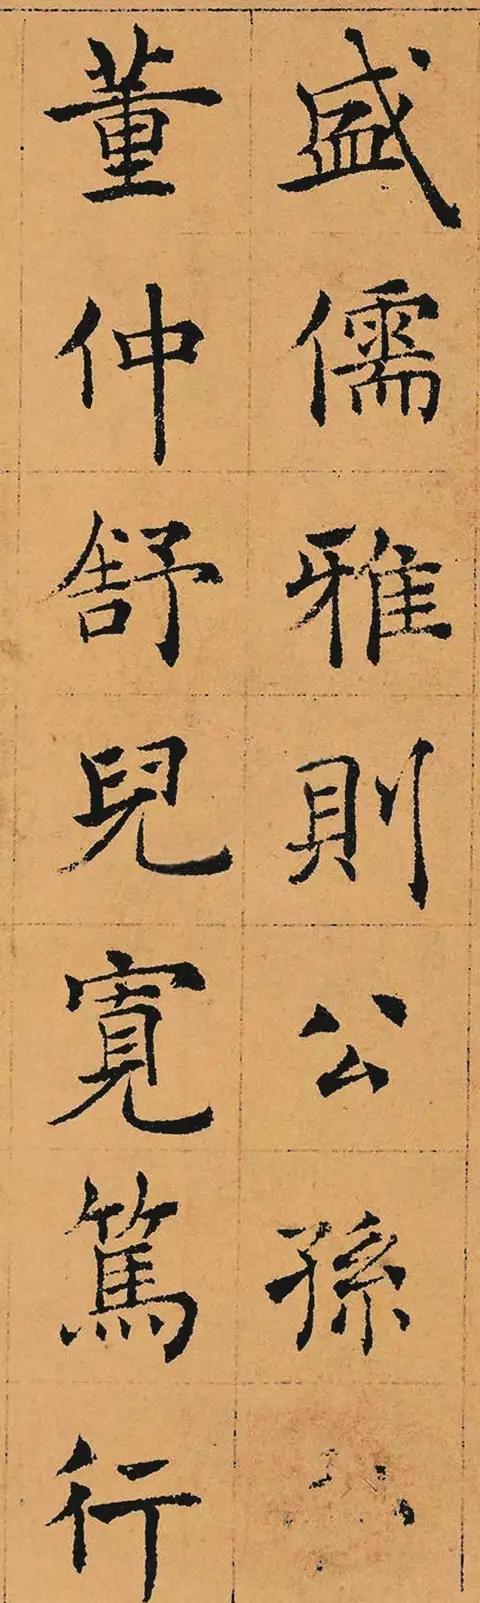 盛儒雅則公孫
董仲舒兒寬篤行